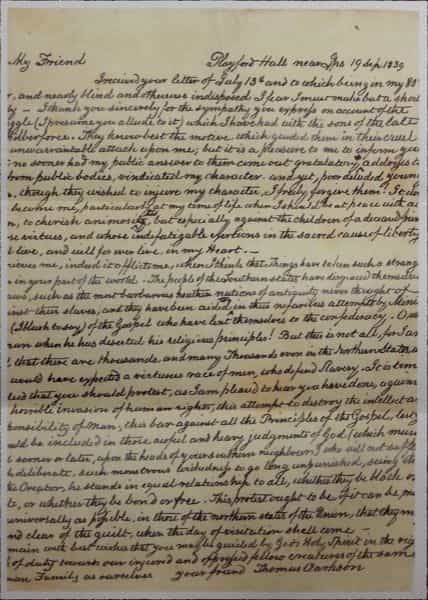 My Friend Playford Hall near Ips 19 Sep. 1839
I received your letter of July 13th and to which being in my 80
r, and nearly blind and otherwise indisposed I fear I must make but a short
ly — I thank you sincerely for the sympathy you express on account of the
uggle (I presume you allude to it) which I have had with the sons of the late
Wilberforce. They know best the motive which guided them in their cruel
unwarrantable attack upon me; but it is a pleasure to me to inform you
no sooner had my public answer to them come out gratulatory addresses to
from public bodies, vindicated my character. and yet, poor deluded young
, though they wished to injure my character, I truly forgive them! It
become me, particularly at my time of life when I should be at peace with
n, to cherish animosity, but especially against the children of a
se virtues, and whose indefatigable exertions in the sacred cause of liberty
t love, and will for ever live, in my Heart. —
rieves me, indeed it afflicts me, when I think that Things have taken such a strange
in your part of the world. The people of the Southern States have disgraced themselves
laws, such as the most barbarous heathen nations of antiquity never thought of
inst their slaves, and they have been aided in this nefarious attempt by
(I blush to say) of the Gospel who have lent themselves to the confederacy.
man when he has deserted his religious principles! But this is not all, for I
that there are thousands, and many Thousands even in the Northern States,
would have expected a virtuous race of men, who defend Slavery. It is
that you should protest, as I am pleased to hear you have done, against
horrible invasion of human rights, this attempt to destroy the intellect
ponsibility of Man, this bar against all the Principles of the Gospel, lest
ould be included in those awful and heavy judgments of God (which must
sooner or later, upon the heads of your southern neighbours) who will not
h deliberate, such monstrous wickedness to go long unpunished, seeing
the Creator, he stands in equal relationship to all, whether they be black or
te, or whether they be bond or free. This protest ought to be, if it can be,
universally as possible, in those of the northern states of the Union, that they
nd clear of the guilt, when the day of visitation shall come —
main with best wishes that you may be guided by God's Holy Spirit in the
of duty towards our injured and oppressed fellow creatures of the same
man Family as ourselves your friend Thomas Clarkson